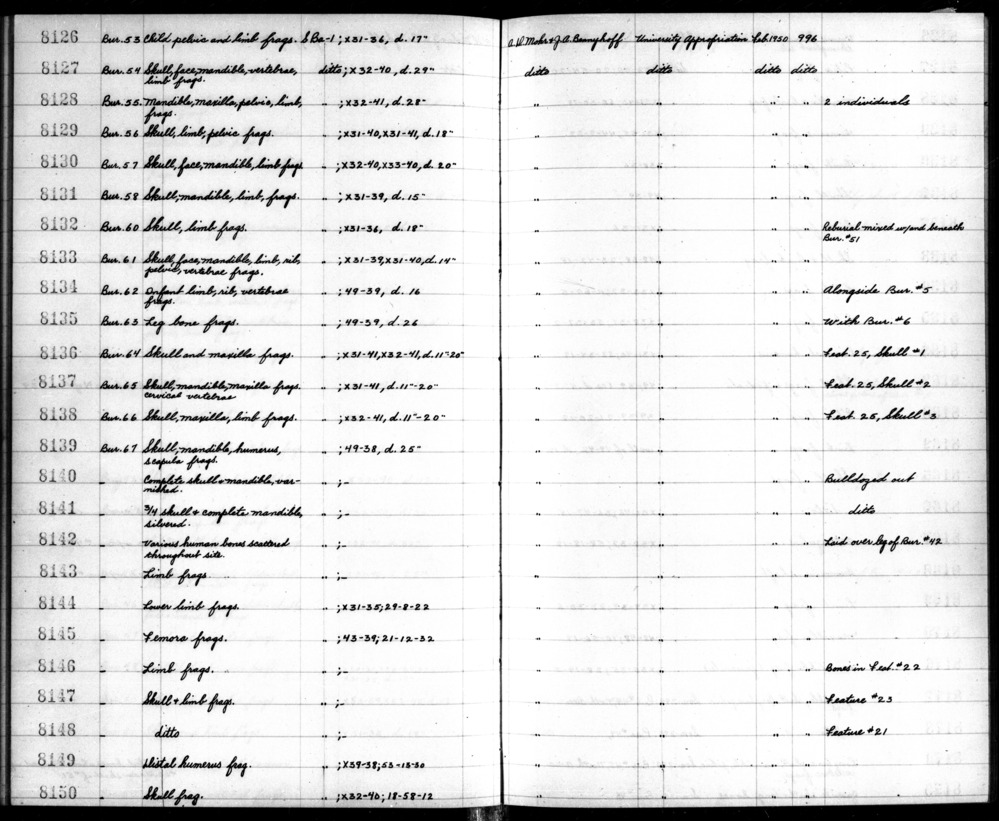 8126 Bur. 53 Child pelvic and limb frags. SBa-1; X31-36, d. 17" A. D. Mohr & J. A. Bennyhoff University Appropriation Feb. 1950 996
8127 Bur. 54 Skull, face, mandible, vertebrae, ditto; X32-40, d. 29" ditto ditto ditto ditto
limb frags.
8128 Bur. 55. Mandible, maxilla, pelvic, limb, " ; X32-41, d. 28" " " " " 2 individuals
frags.
8129 Bur. 56 Skull, limb, pelvic frags. " ; X31-40, X31-41, d. 18" " " " "
8130 Bur. 57 Skull, face, mandible, limb frags. " ; X32-40, X33-40, d. 20" " " " "
8131 Bur. 58 Skull, mandible, limb, frags. " ; X31-39, d. 15" " " " "
8132 Bur. 60 Skull, limb frags. " ; X31-36, d. 18" " " " " Reburial mixed w/and beneath
Bur. #51
8133 Bur. 61 Skull, face, mandible, limb, rib, " ; X31-39, X31-40, d. 14" " " " "
pelvic, vertebrae frags.
8134 Bur. 62 Infant limb, rib, vertebrae " ; 49-39, d. 16 " " " " Alongside Bur. #5
frags.
8135 Bur. 63 Leg bone frags. " ; 49-39, d. 26 " " " " With Bur. #6
8136 Bur. 64 Skull and maxilla frags. " ; X31-41, X32-41, d. 11"-20" " " " " Feat. 25, Skull #1
8137 Bur. 65 Skull, mandible, maxilla frags. " ; X31-41, d. 11"-20" " " " " Feat. 25, Skull #2
cervical vertebrae
8138 Bur. 66 Skull, maxilla, limb frags. " ; X32-41, d. 11"-20" " " " " Feat. 25, Skull #3
8139 Bur. 67 Skull, mandible, humerus, " ; 49-38, d. 25" " " " "
scapula frags.
8140 - Complete skull & mandible, var- " ; - " " " " Bulldozed out
nished.
8141 - 3/4 skull & complete mandible, " ; - " " " " ditto
silvered.
8142 - Various human bones scattered " ; - " " " " Laid over leg of Bur. #42
throughout site
8143 - Limb frags " ; - " " " "
8144 - Lower limb frags. " ; X31-35; 29-8-22 " " " "
8145 - Femora frags. " ; 43-39; 21-12-32 " " " "
8146 - Limb frags. " ; - " " " " Bones in Feat. #22
8147 - Skull & limb frags. " ; - " " " " Feature #23
8148 - ditto " ; - " " " " Feature #21
8149 - Distal humerus frag. " ; X39-38; 53-13-30 " " " "
8150 - Skull frag. " ; X32-40; 18-58-12 " " " "